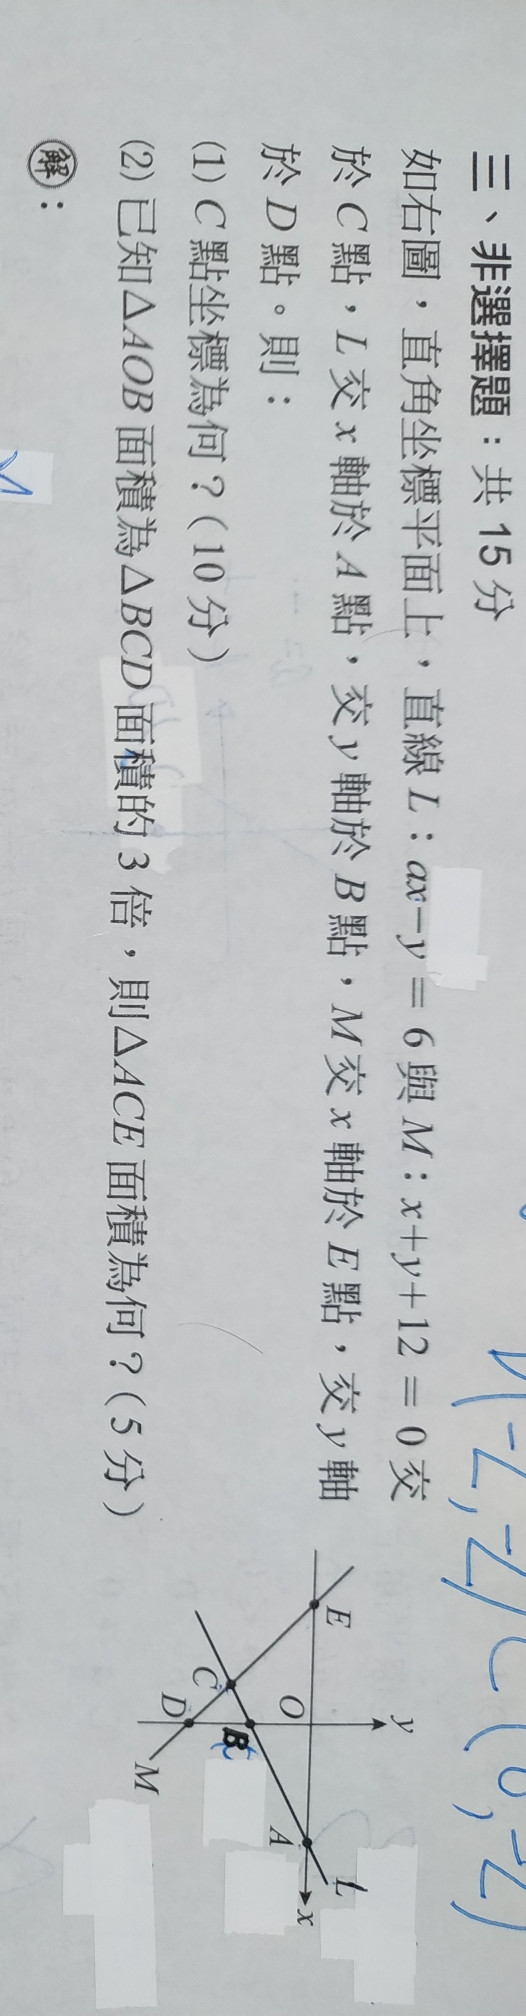 三、非選擇題：共 15 分
如右圖，直角坐標平面上，直線 L：ax−y＝6 與 M：x+y+12＝0 交
於 C 點，L 交 x 軸於 A 點，交 y 軸於 B 點，M 交 x 軸於 E 點，交 y 軸
於 D 點。則：
(1) C 點坐標為何？(10 分)
(2) 已知△AOB 面積為△BCD 面積的 3 倍，則△ACE 面積為何？(5 分)
解：
y
E
O
A
x
L
C
B
D
M
(-2,-2)
C(0,-2)